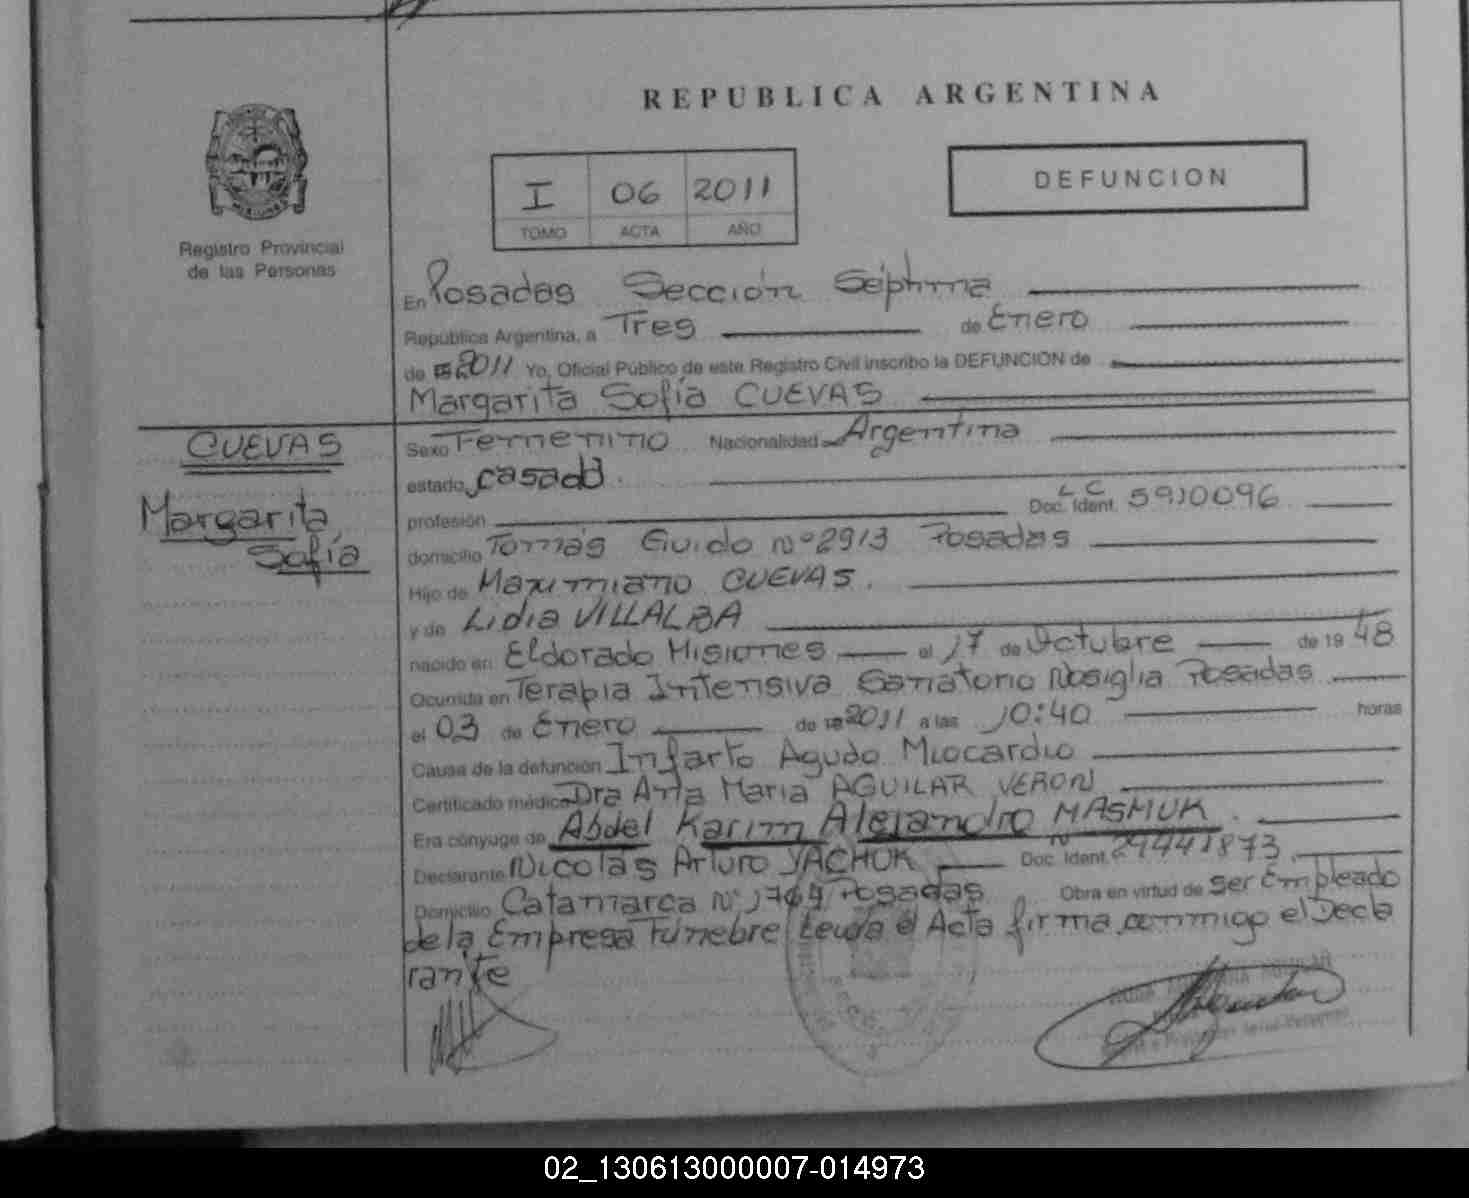 REPUBLICA ARGENTINA
I 06 2011
TOMO ACTA AÑO
DEFUNCION
MISIONES
Registro Provincial
de las Personas
En Posadas Sección Séptima
República Argentina, a Tres de Enero
de 2011 Yo, Oficial Público de este Registro Civil inscribo la DEFUNCION de
Margarita Sofía CUEVAS
CUEVAS
Margarita
Sofía
Sexo Femenino Nacionalidad Argentina
estado casada.
profesión Doc. Ident. L C 5910096
domicilio Tomás Guido Nº 2913 Posadas
Hijo de Maximiano CUEVAS.
y de Lidia VILLALBA
nacido en Eldorado Misiones el 17 de Octubre de 19 48
Ocurrida en Terapia Intensiva Sanatorio Nosiglia Posadas
el 03 de Enero de 19 2011 a las 10:40 horas
Causa de la defunción Infarto Agudo Miocardio
Certificado médico Dra Ana Maria AGUILAR VERON
Era cónyuge de Abdel Karim Alejandro MASMUK.
Declarante Nicolás Arturo YACHUK Doc. Ident. 29441873
Domicilio Catamarca Nº 1769 Posadas Obra en virtud de ser Empleado
de la Empresa Fúnebre Leída el Acta firma conmigo el Decla
rante
02_130613000007-014973